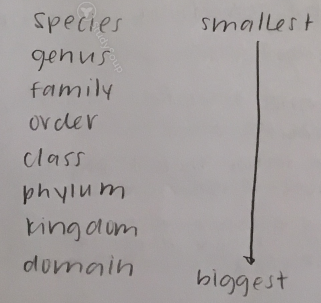 species smallest
genus
family
order
class
phylum
kingdom
domain
biggest